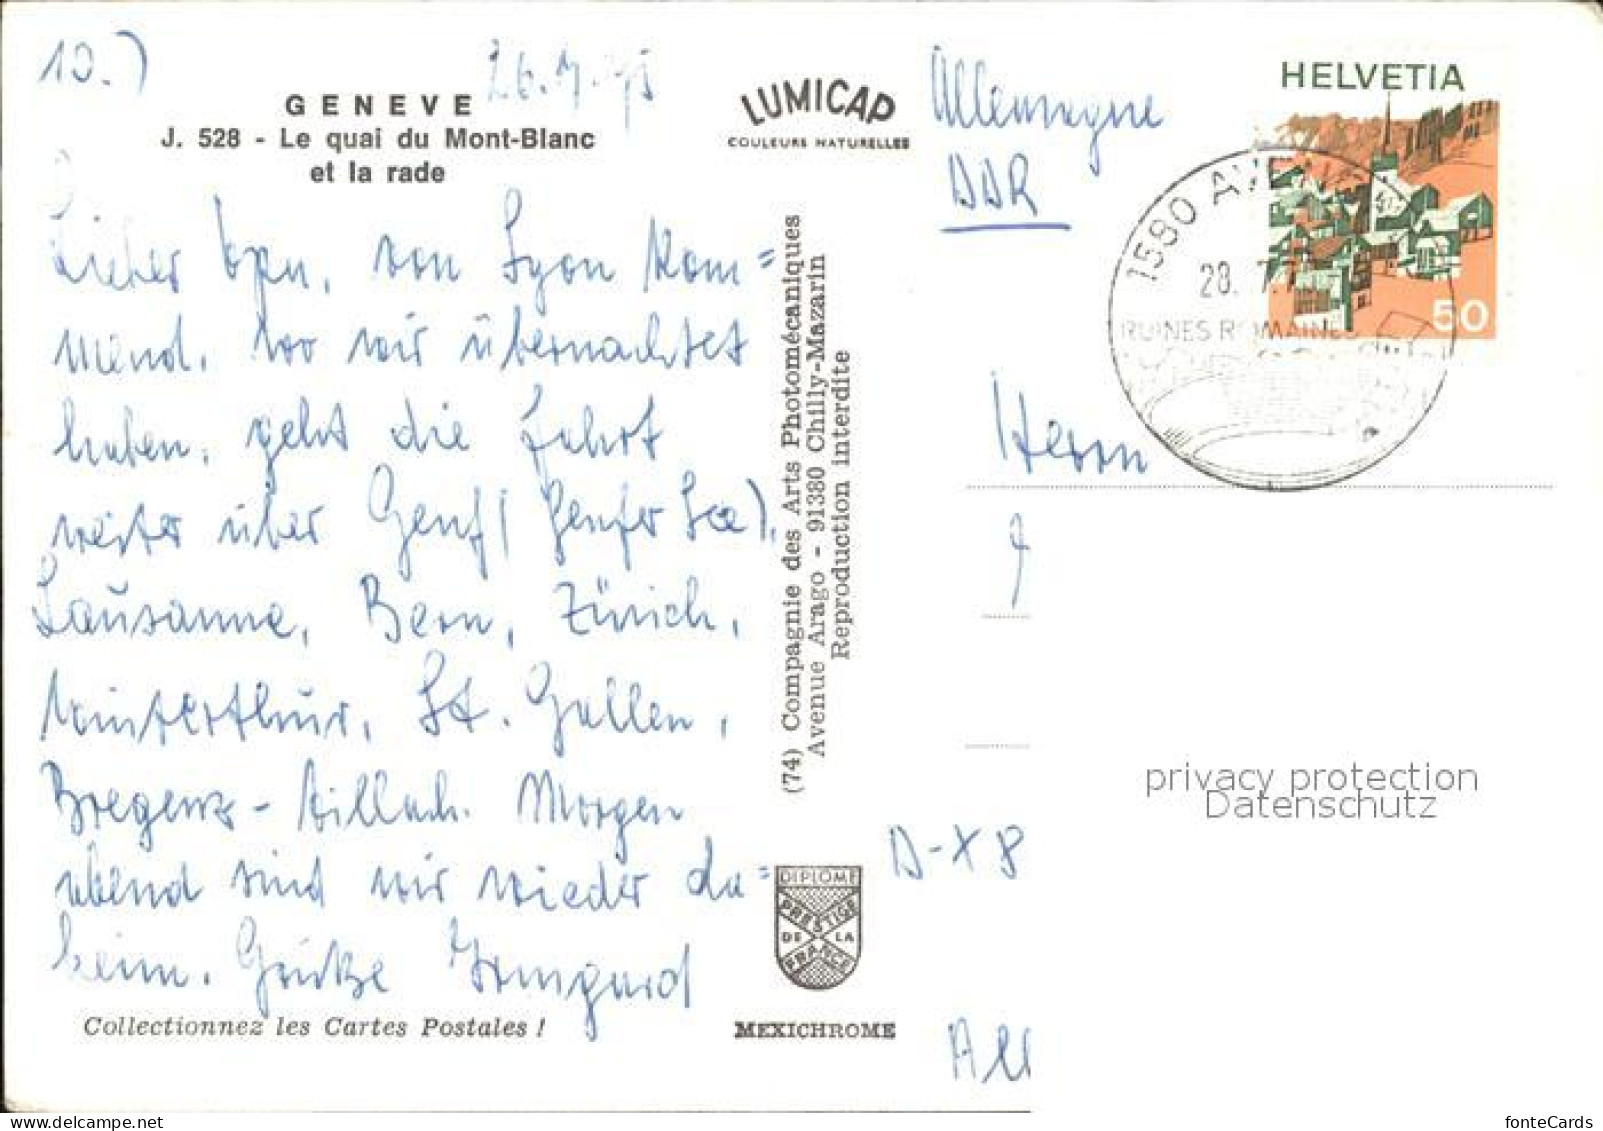 10.)
26.7.75
GENEVE
J. 528 - Le quai du Mont-Blanc
et la rade
Lieber von Lyon kom=
mend, wo wir übernachtet
haben, geht die Fahrt
weiter über Genf (Genfer See),
Lausanne, Bern, Zürich,
Winterthur, St. Gallen,
Bregenz - Villach. Morgen
abend sind wir wieder da=
heim. Grüße Irmgard
Collectionnez les Cartes Postales !
LUMICAP
COULEURS NATURELLES
(74) Compagnie des Arts Photomécaniques
Avenue Arago - 91380 Chilly-Mazarin
Reproduction interdite
DIPLOME
PRESTIGE
DE LA
FRANCE
MEXICHROME
Allemagne
DDR
HELVETIA
50
1580 AVENCHES
28. 7.7
RUINES ROMAINES
Herrn
D-X 8
All
privacy protection
Datenschutz
fonteCards